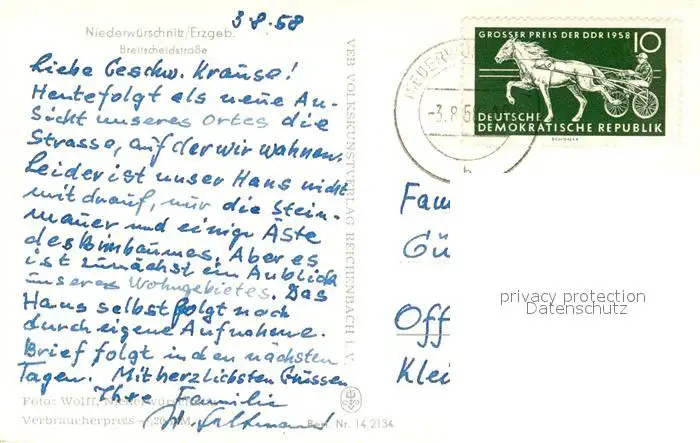 3.8.58
Niederwürschnitz/Erzgeb.
Breitscheidstraße
Liebe Geschw. Krause!
Heute folgt als neue An-
sicht unseres Ortes die
Strasse, auf der wir wohnen.
Leider ist unser Haus nicht
mit drauf, nur die Stein-
mauer und einige Äste
des Birnbaumes. Aber es
ist zunächst ein Anblick
unseres Wohngebietes. Das
Haus selbst folgt noch
durch eigene Aufnahme.
Brief folgt in den nächsten
Tagen. Mit herzlichsten Grüssen
Ihre Familie
Foto: Wolff, Niederwürschnitz
Verbraucherpreis 20 DM
Best. Nr. 14 2134
VEB VOLKSKUNSTVERLAG REICHENBACH I. V.
GROSSER PREIS DER DDR 1958 10
DEUTSCHE
DEMOKRATISCHE REPUBLIK
-3.8.58
b
Fam
Gü
Off
Klei
privacy protection
Datenschutz